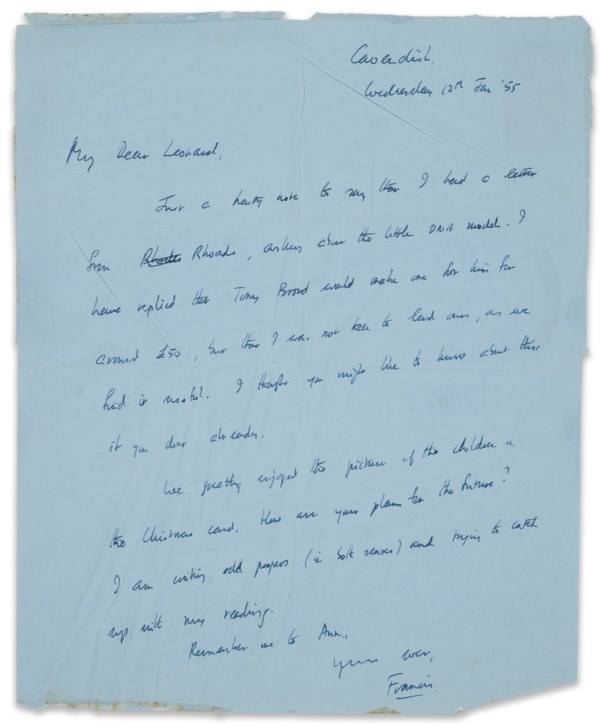 Cavendish.
Wednesday 12th Jan '55
My Dear Leonard,
Just a hasty note to say that I had a letter
from Rhoads, asking about the little DNA model. I
have replied that Tony Broad would make one for him for
around £50, but that I was not keen to lend ours, as we
find it useful. I thought you might like to know about this,
if you don't already.
We greatly enjoyed the picture of the children in
the Christmas card. How are your plans for the future?
I am writing odd papers (in both senses) and trying to catch
up with my reading.
Remember me to Ann,
Yours ever,
Francis